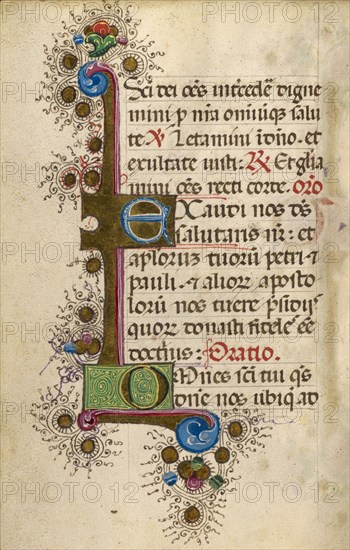 Sci dei oēs intercedē digne
mini p nr̄a omniūq; salu
te ℣ Letamini i dn̄o. et
exultate iusti: ℟ Et gl̄ia
mini oēs recti corde. or̄o
EXaudi nos ds̄
salutaris nr̄: et
apl̄oruz tuoruz petri et
pauli. et alior aposto
lorū nos tuere p̄sidijs
quor donasti fidelē eē
doctrīis: Oratio.
OMnes sc̄i tui q̄s
dn̄e nos ubiq; ad
PHOTO12